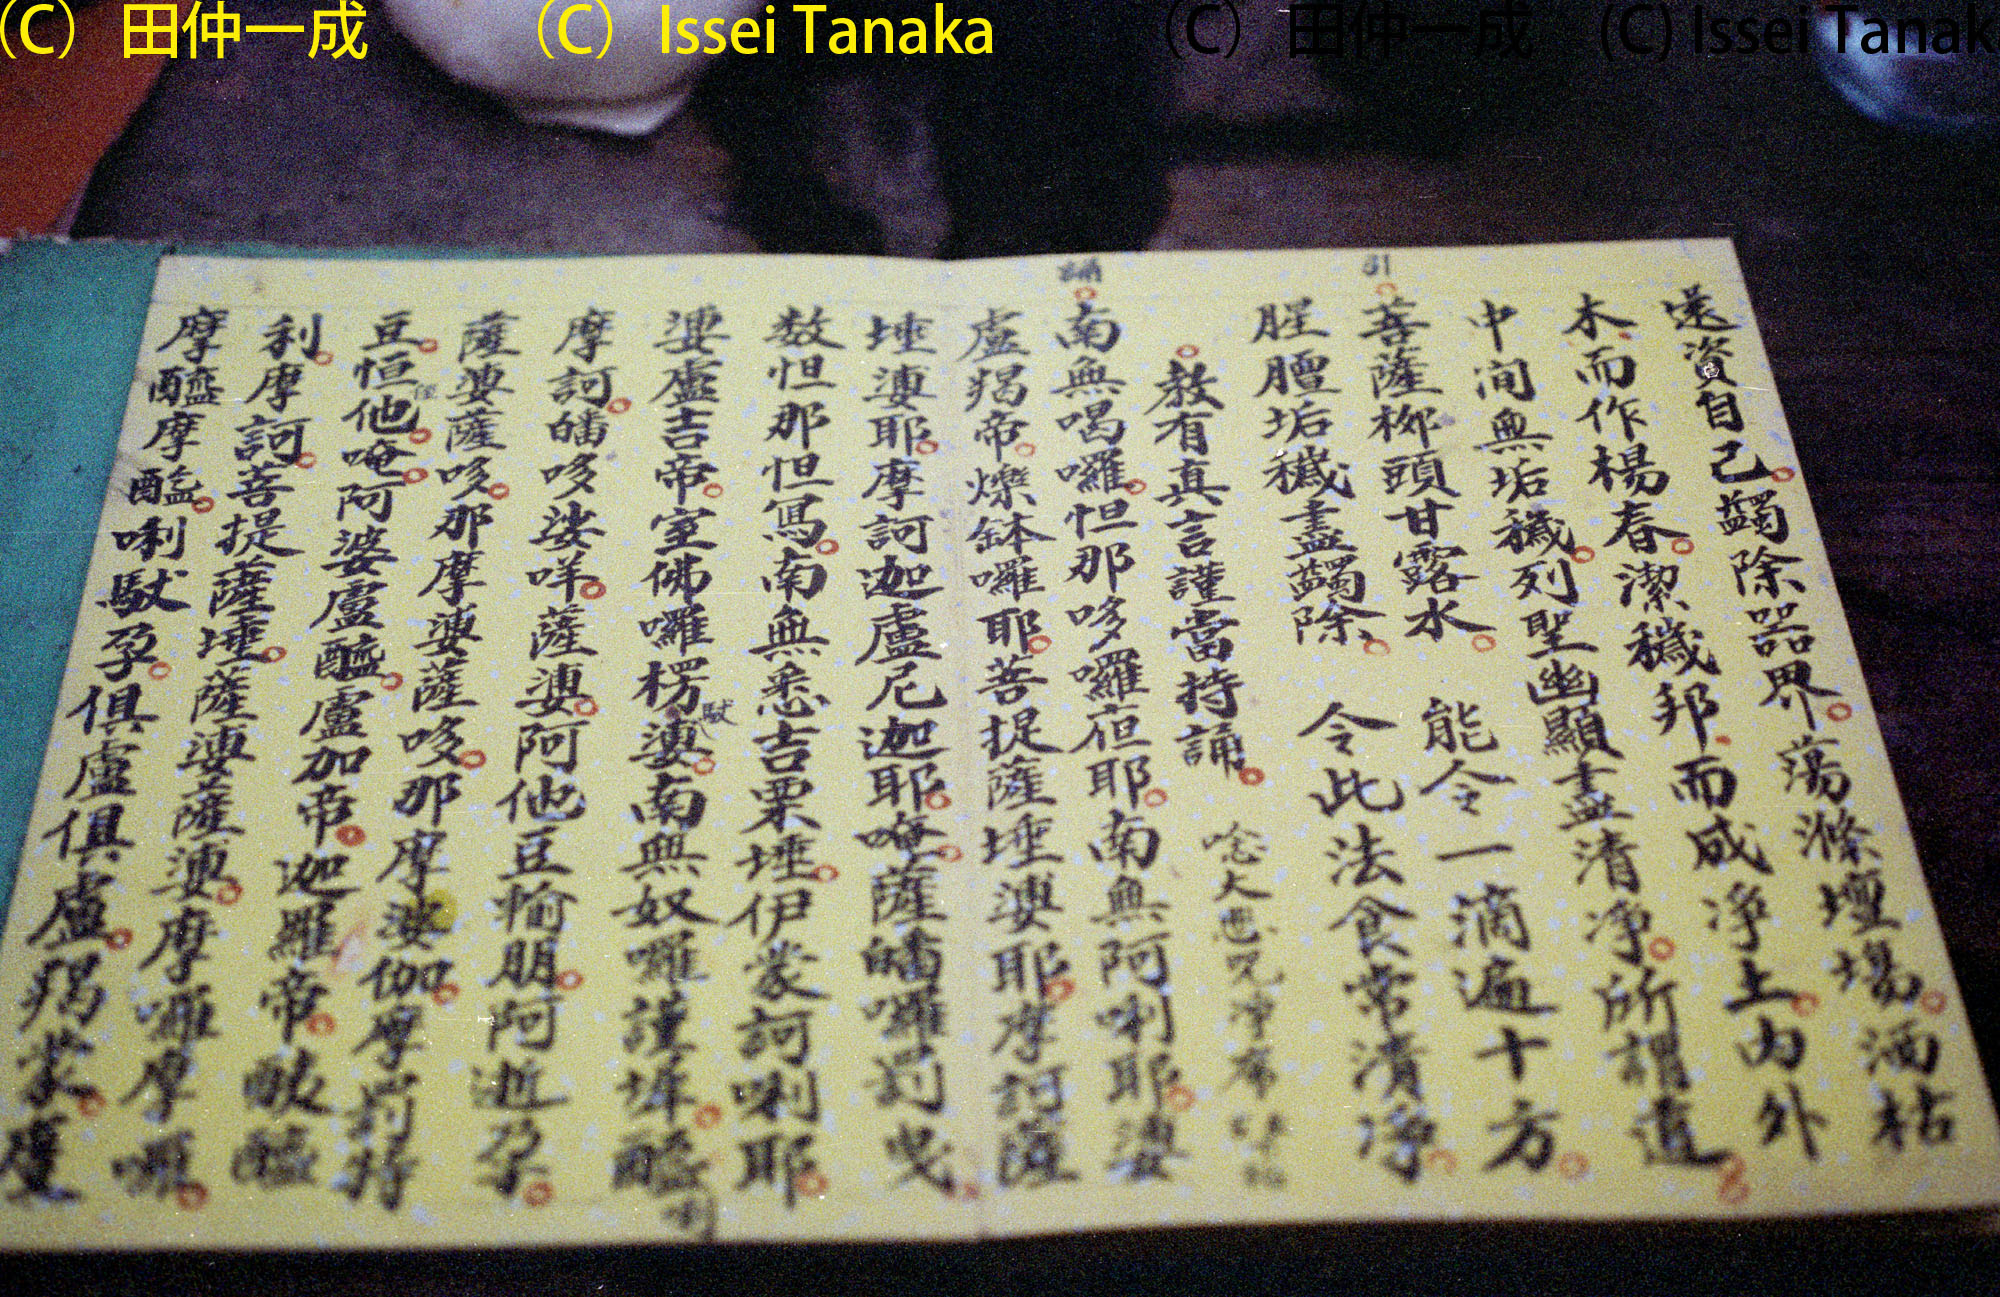 (C) 田仲一成 (C) Issei Tanaka (C) 田仲一成 (C) Issei Tanak
送資自己蠲除器界蕩滌壇場洒枯
木而作楊春潔穢邦而成淨土内外
中間無垢穢列聖幽顯盡清淨所謂道
引
菩薩柳頭甘露水 能令一滴遍十方
腥膻垢穢盡蠲除 令此法食常清淨
教有真言謹當持誦 唸大悲咒淨
誦
南無喝囉怛那哆囉夜耶南無阿唎耶婆
盧羯帝爍鉢囉耶菩提薩埵婆耶摩訶薩
埵婆耶摩訶迦盧尼迦耶唵薩皤囉罰曳
数怛那怛寫南無悉吉栗埵伊蒙訶唎耶
婆盧吉帝室佛囉楞馱婆南無奴囉謹墀醯
唎
摩訶皤哆娑咩薩婆阿他豆輸朋阿逝孕
薩婆薩哆那摩婆薩哆那摩婆伽摩罰特
豆恒他唵阿婆盧醯盧加帝迦羅帝醯
利摩訶菩提薩埵薩婆薩婆摩囉摩囉
摩醯摩醯唎馱孕俱盧俱盧羯蒙度